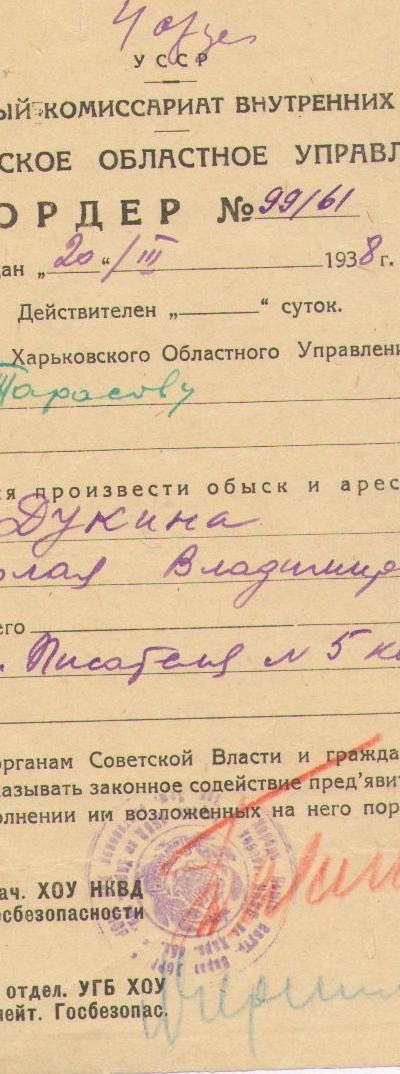 УССР
ЫЙ КОМИССАРИАТ ВНУТРЕННИХ
СКОЕ ОБЛАСТНОЕ УПРАВЛ
ОРДЕР № 99/61
дан „20“/III 1938 г.
Действителен „ “ суток.
Харьковского Областного Управлени
Тарасову
ся произвести обыск и арес
Дукина
олая Владимир
его
. Писателя № 5 к
органам Советской Власти и гражда
казывать законное содействие пред'яви
олнении им возложенных на него пор
ач. ХОУ НКВД
осбезопасности
отдел. УГБ ХОУ
лейт. Госбезопас.